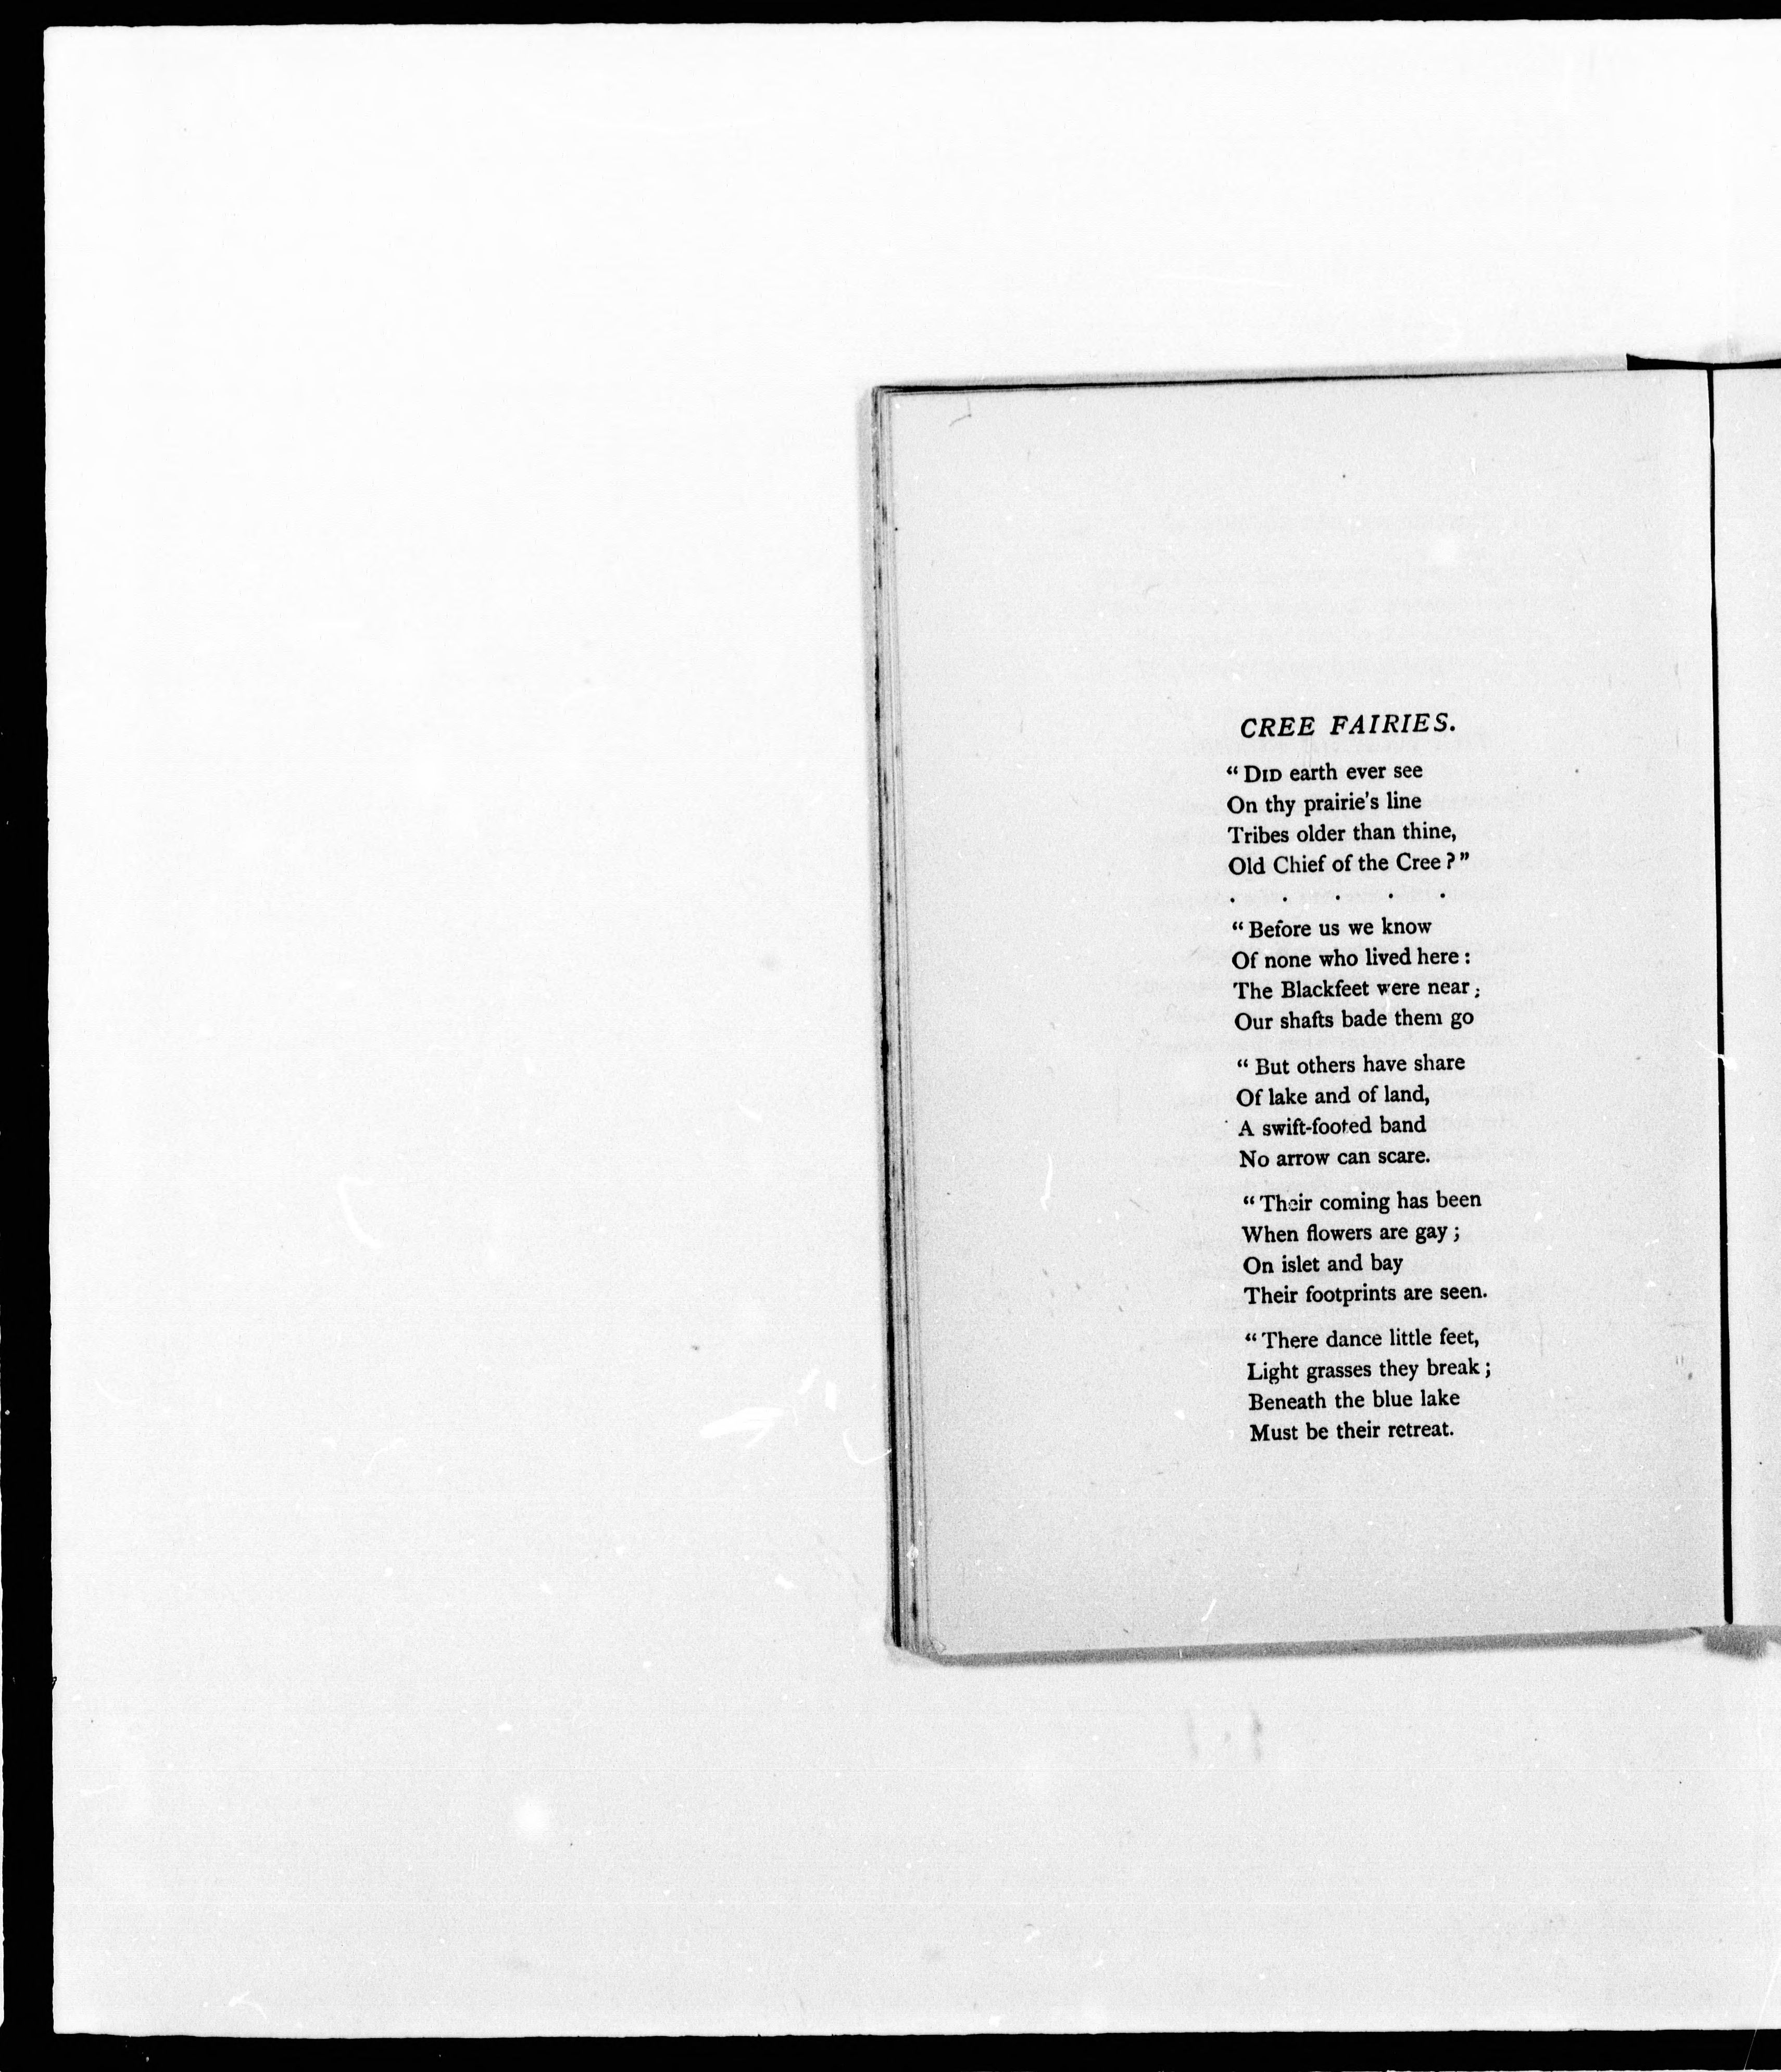 CREE FAIRIES.
“ DID earth ever see
On thy prairie's line
Tribes older than thine,
Old Chief of the Cree ? ”
. . . . .
“ Before us we know
Of none who lived here :
The Blackfeet were near ;
Our shafts bade them go
“ But others have share
Of lake and of land,
A swift-footed band
No arrow can scare.
“ Their coming has been
When flowers are gay ;
On islet and bay
Their footprints are seen.
“ There dance little feet,
Light grasses they break ;
Beneath the blue lake
Must be their retreat.